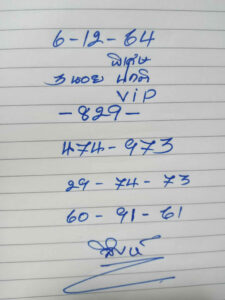 6-12-64
พิเศษ
ฮานอย ปกติ
VIP
-829-
474-973
29-74-73
60-91-61